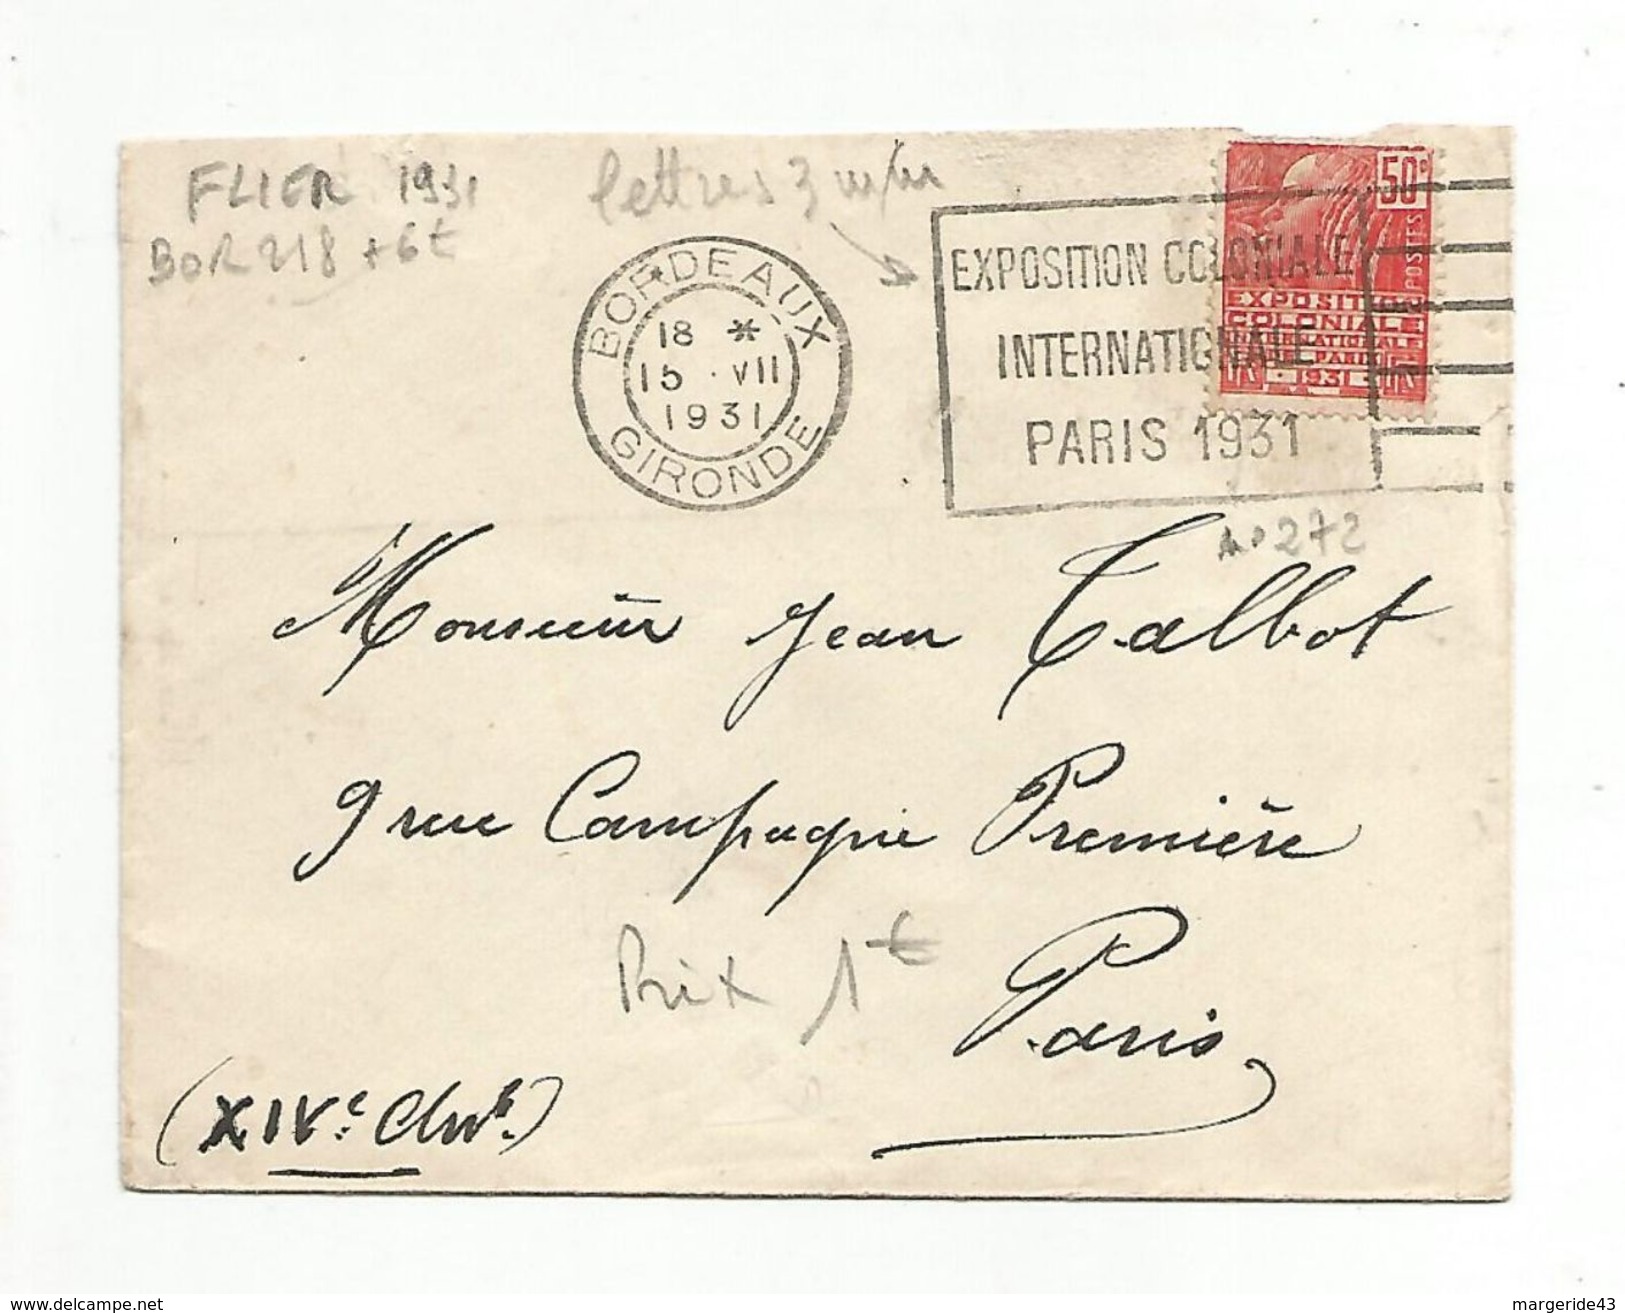 FLIER 1931
BOR 218 + 6€
lettres 3 m/m
BORDEAUX
18 *
15 · VII
1931
GIRONDE
EXPOSITION COLONIALE
INTERNATIONALE
PARIS 1931
50c
POSTES
EXPOSITION
COLONIALE
INTERNATIONALE
PARIS
1931
n° 272
Monsieur Jean Talbot
9 rue Campagne Première
Prix 1€
Paris
(XIVe: Arrt.)
delcampe.net
margeride43